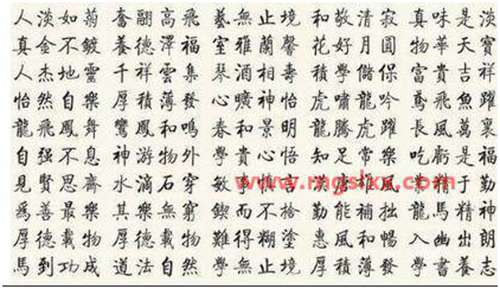 人淡如菊 奮翮高飛 藝無止境 和敬清寂 真味是淡
真金不鍍 養德澤福 室雅蘭馨 花好月圓 物華天寶
人杰地靈 千祥雲集 琴酒相壽 積學儲保 富貴吉祥
怡然自樂 厚積薄發 心曠神怡 虎嘯龍吟 鳶飛魚躍
龍飛鳳舞 鸞鳳和鳴 春和景明 龍騰虎躍 長風萬裏
自强不息 神游物外 學貴心悟 知足常樂 吃虧是福
見賢思齋 水滴石穿 精于勤
www.mgslxx.com
爲善最樂 其樂無窮 鍥而不捨 勤能補拙 龍馬精神
厚德載物 厚德載物 難得糊塗 惠風和暢 入幽出朗
馬到功成 道法自然 學無止境 厚積薄發 學書養志